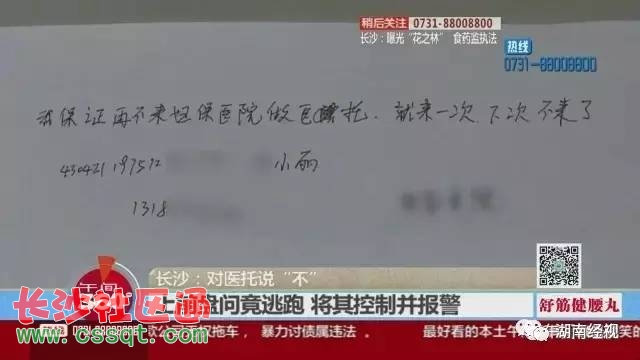 稍后关注 0731-88008800
长沙：曝光“花之林” 食药监执法
热线
0731-88008800
我保证再不来妇保医院做医托，就来一次下次不来了
430421197512
小丽
1318
长沙：对医托说“不”
上前盘问竟逃跑 将其控制并报警
舒筋健腰丸
长沙社区通
www.cssqt.com
拖车，暴力讨债属违法。
最好看的本土午
湖南经视